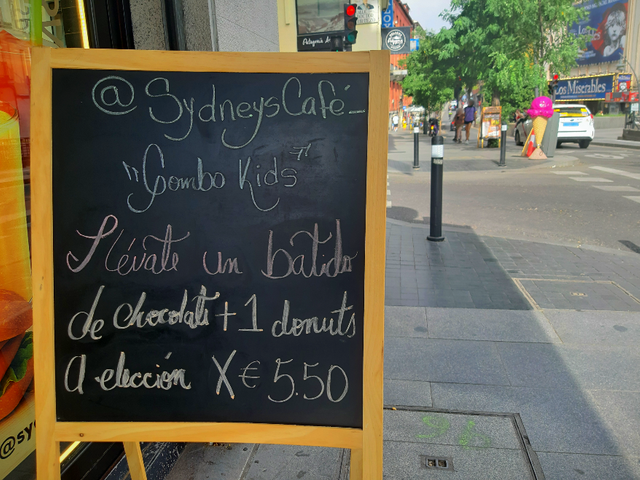 @SydneysCafé_
"Combo Kids"
Llévate un batido
de chocolate + 1 donuts
A elección X € 5.50
@sy
Los Miserables